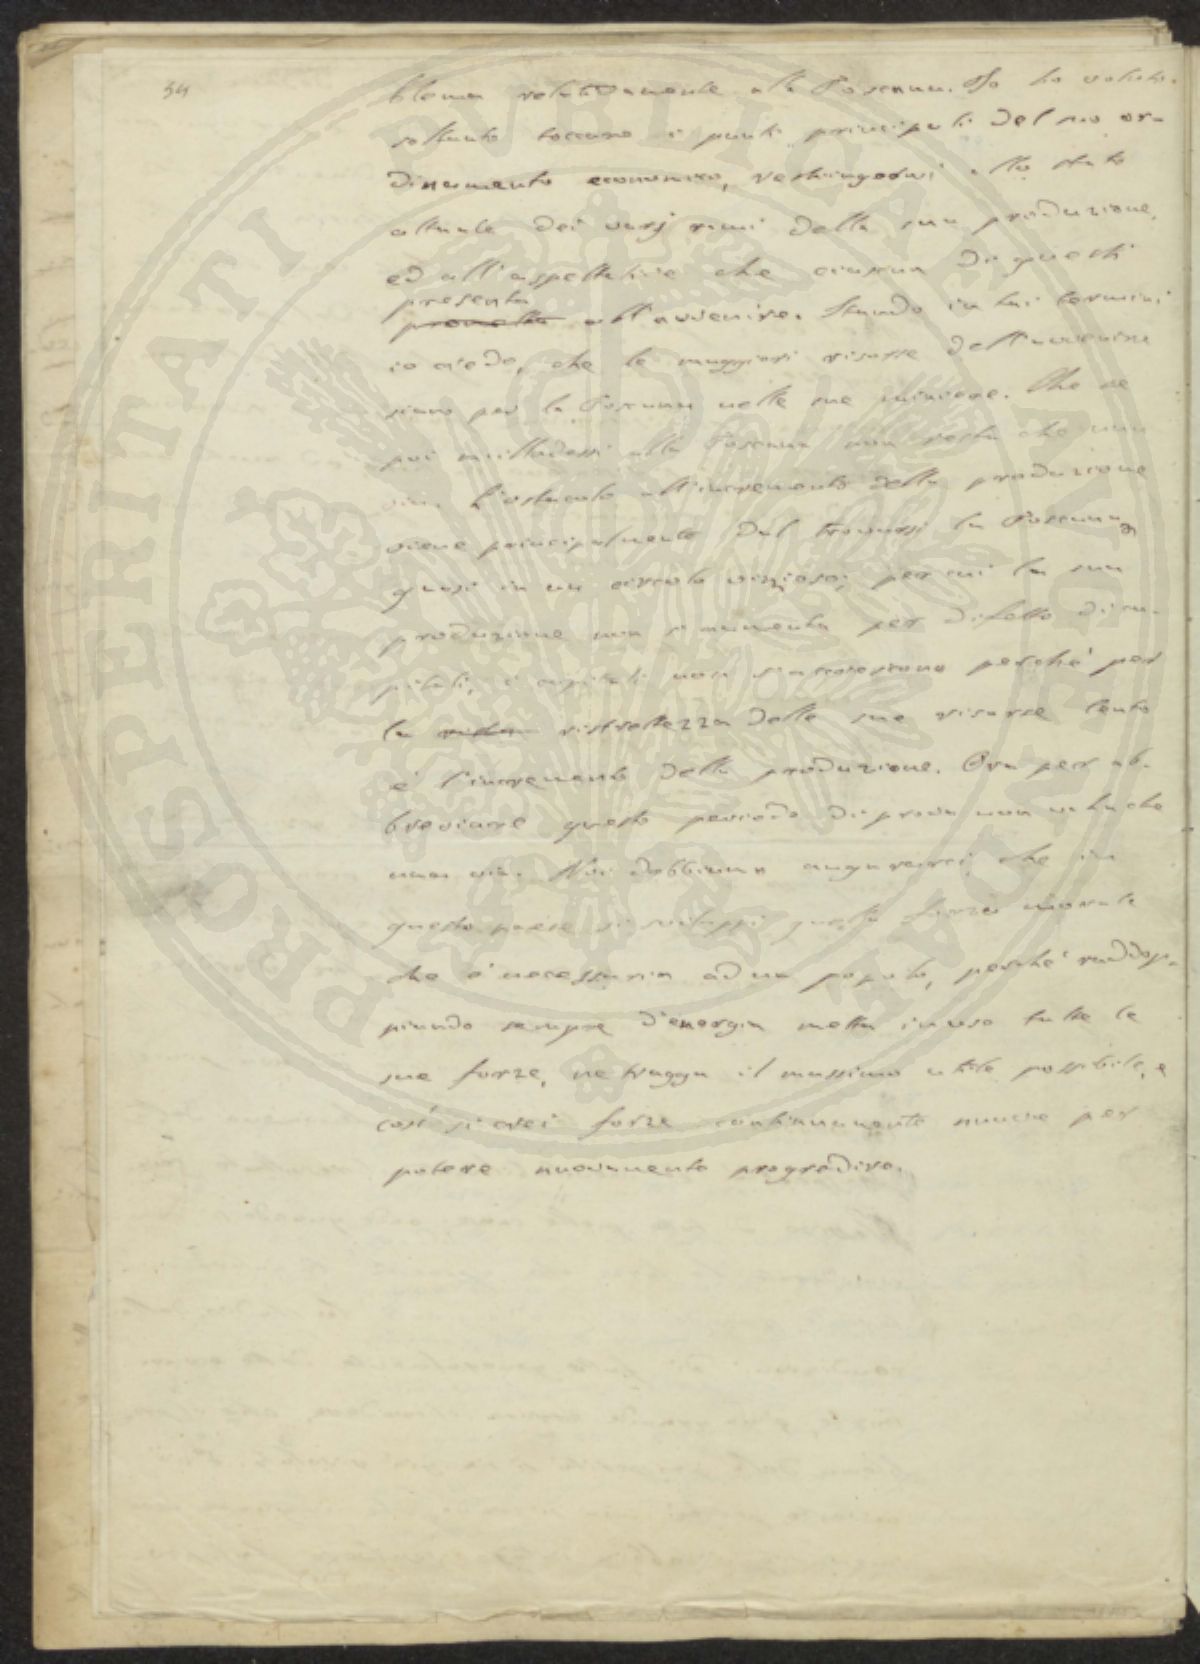 54
blema relativamente alla Toscana. Io ho voluto
soltanto toccare i punti principali del suo or-
dinamento economico, restringendomi allo stato
attuale dei varj rami della sua produzione,
ed all'aspettative che ciascun di questi
presenta
prometta all'avvenire. Stando in tai termini
io credo, che le maggiori risorse dell'avvenire
siano per la Toscana nelle sue miniere. Che se
poi alla Toscana non resta che una
via. L'ostacolo all'incremento della produzione
viene principalmente dal trovarsi la Toscana
quasi in un circolo vizioso; per cui la sua
produzione non s'aumenta per difetto di ca-
pitali, i capitali non s'accrescono perché per
la ristrettezza delle sue risorse lento
è l'incremento della produzione. Ora per ab-
breviare questo periodo di prova non v'ha che
una via. Noi dobbiamo augurarci, che in
questo paese si sviluppi quella forza morale
che è necessaria ad un popolo, perché raddop-
piando sempre d'energia metta in uso tutte le
sue forze, ne tragga il massimo utile possibile, e
così si crei forze continuamente nuove per
potere nuovamente progredire.
PROSPERITATI PUBLICAE AUGENDAE